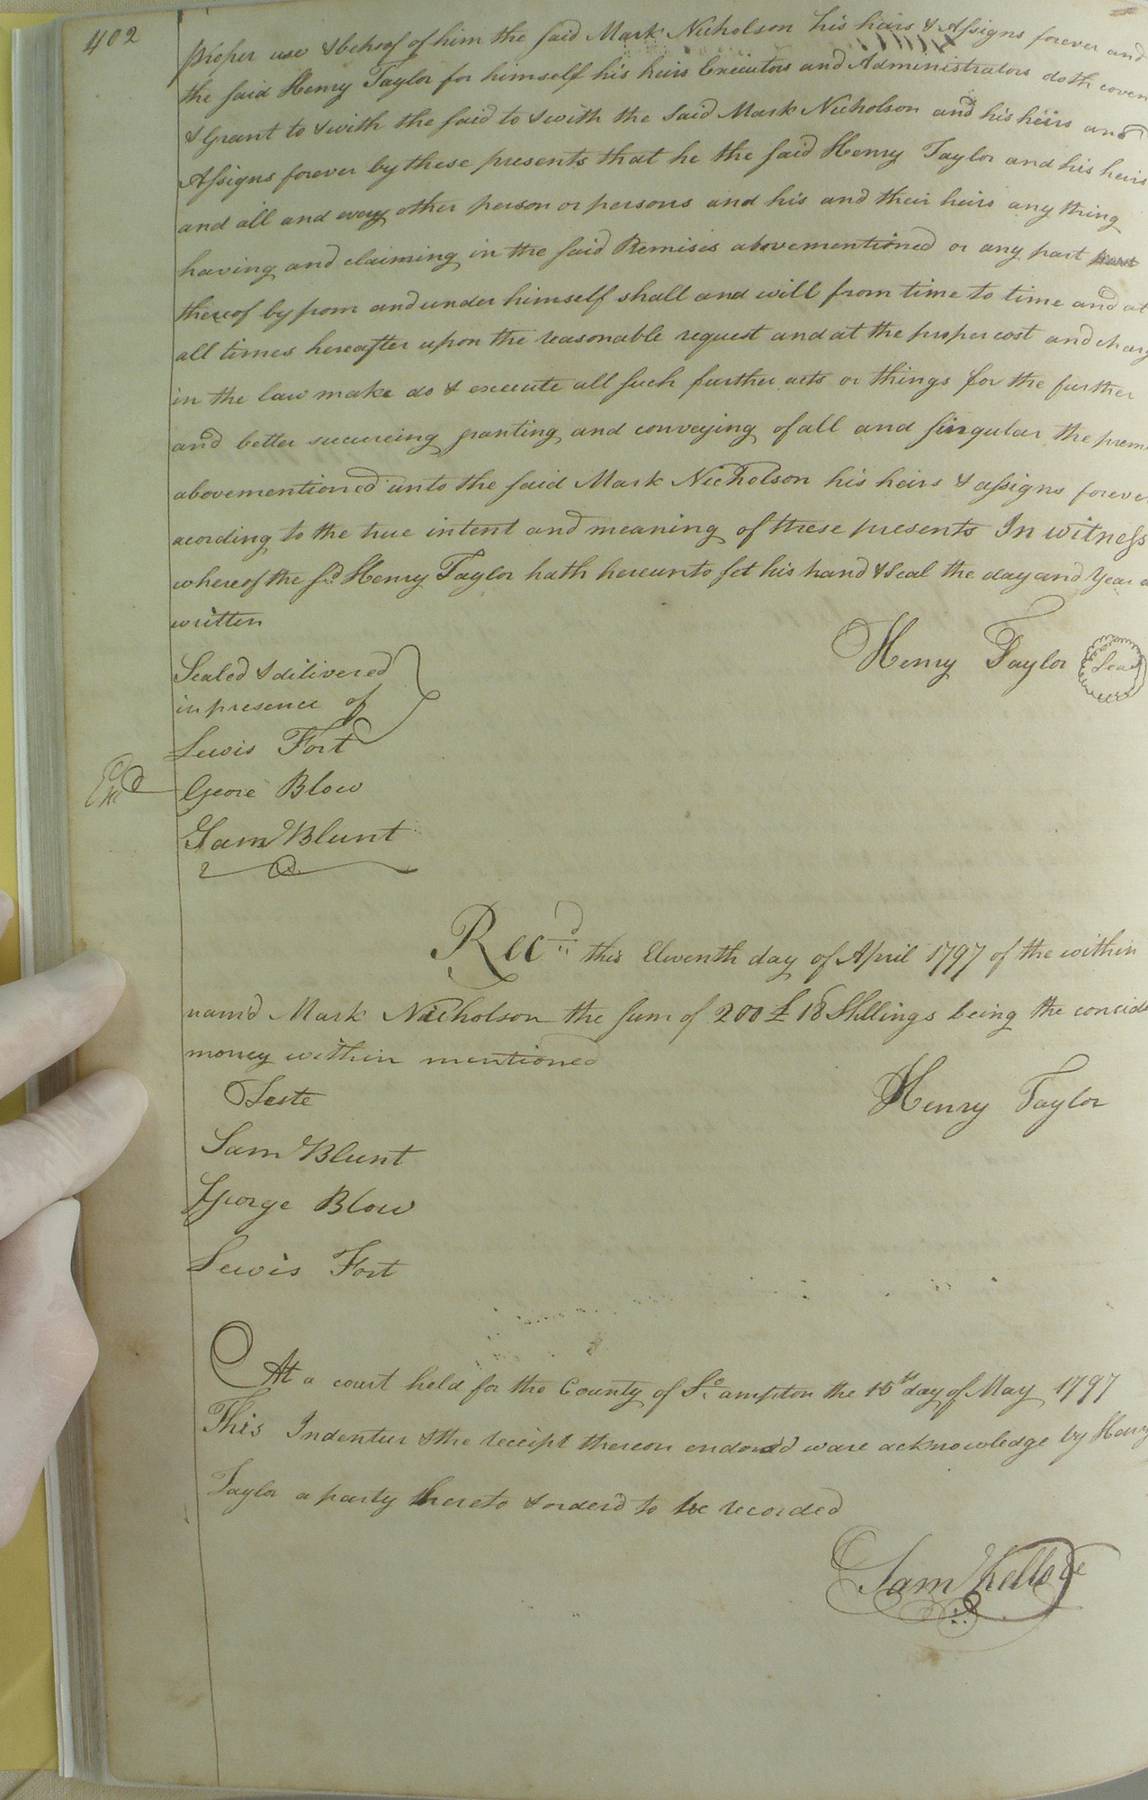 402
proper use & behoof of him the said Mark Nicholson his heirs & Assigns forever and
the said Henry Taylor for himself his heirs Executors and Administrators doth coven
& Grant to & with the said to & with the Said Mark Nicholson and his heirs and
Assigns forever by these presents that he the said Henry Taylor and his heirs
and all and every other person or persons and his and their heirs any thing
having and claiming in the said Premises abovementioned or any part
thereof by from and under himself shall and will from time to time and at
all times hereafter upon the reasonable request and at the proper cost and charg
in the law make do & execute all such further acts or things for the further
and better secureing granting and conveying of all and singular the prem
abovementioned unto the said Mark Nicholson his heirs & assigns foreve
acording to the true intent and meaning of these presents In witness
whereof the sd Henry Taylor hath hereunto set his hand & Seal the day and Year a
written
Henry Taylor Seal
Sealed & dilivered
in presence of
Lewis Fort
Exd
Geore Blow
Sam Blunt
Recd this Eleventh day of April 1797 of the within
namd Mark Nicholson the sum of 200£ 18 Shllings being the concide
money within mentioned
Henry Taylor
Teste
Sam Blunt
George Blow
Lewis Fort
At a court held for the County of So.ampton the 15th day of May 1797
This Indentur & the receipt thereon endorsd ware acknowledge by Henry
Taylor a party thereto & orderd to be recorded
Sam Kello Cc